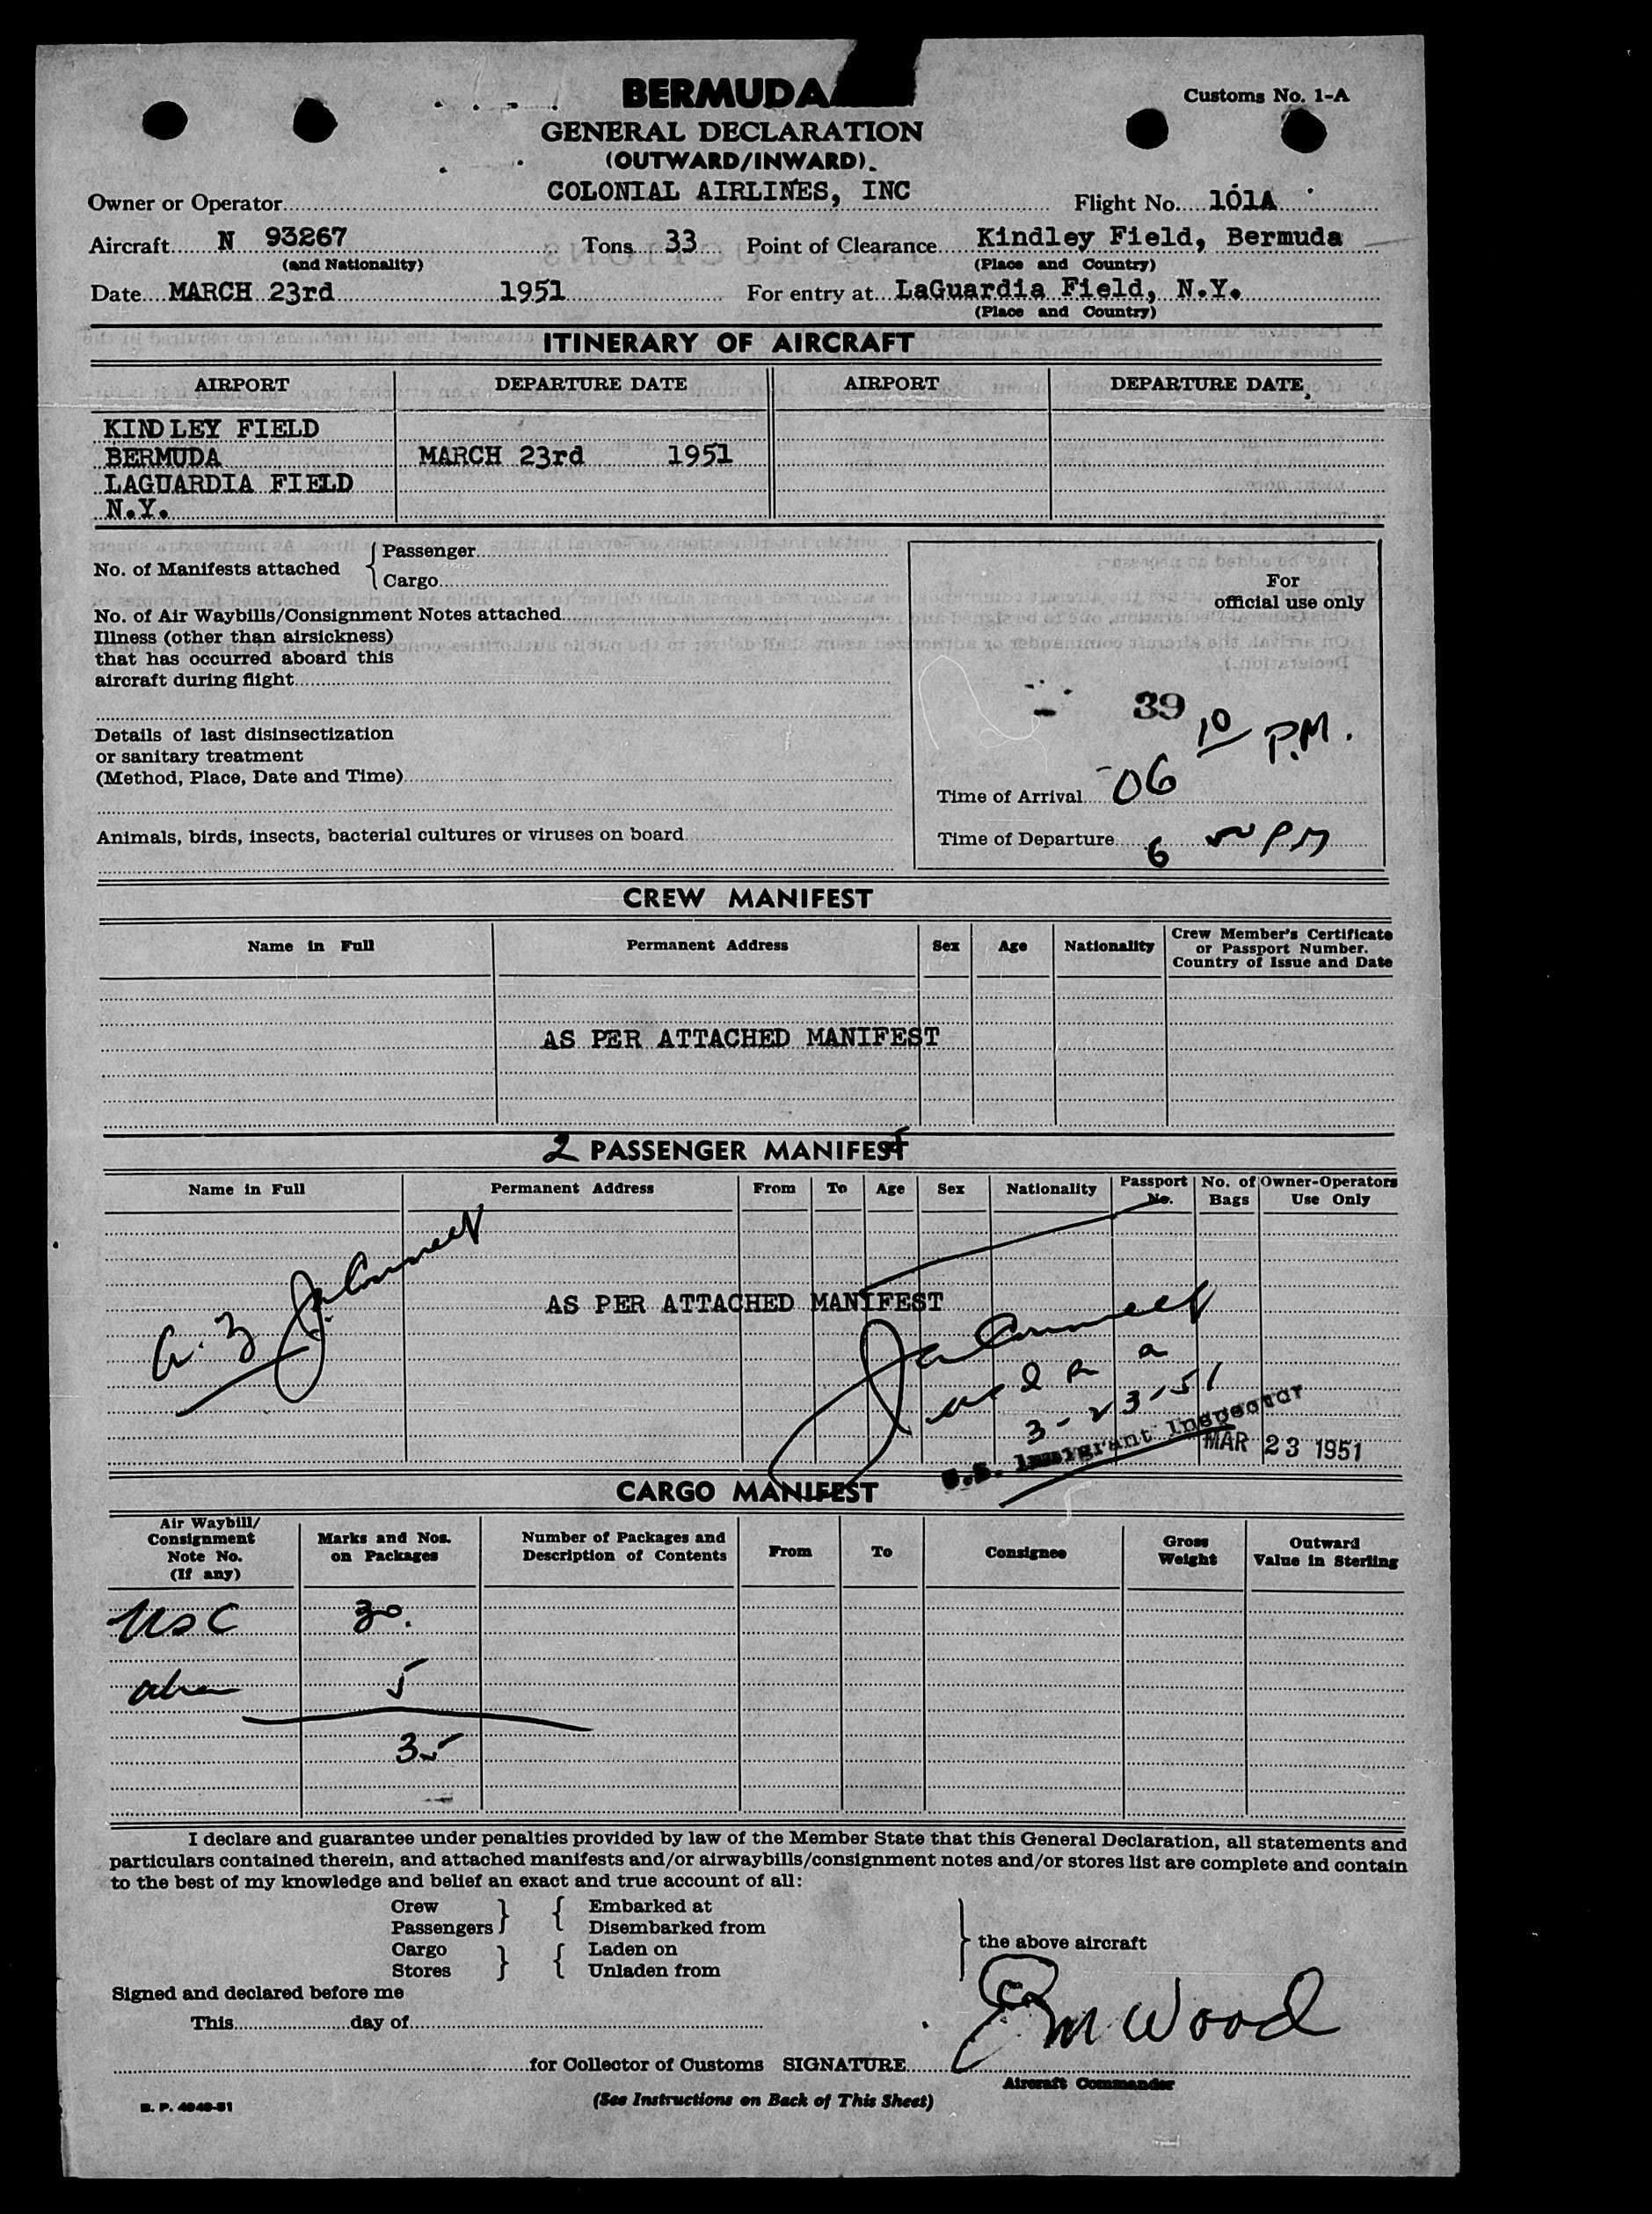 BERMUDA
Customs No. 1-A
GENERAL DECLARATION
(OUTWARD/INWARD).
Owner or Operator COLONIAL AIRLINES, INC Flight No. 101A
Aircraft N 93267 Tons 33 Point of Clearance Kindley Field, Bermuda
(and Nationality) (Place and Country)
Date MARCH 23rd 1951 For entry at LaGuardia Field, N.Y.
(Place and Country)
ITINERARY OF AIRCRAFT
AIRPORT DEPARTURE DATE AIRPORT DEPARTURE DATE
KINDLEY FIELD
BERMUDA MARCH 23rd 1951
LAGUARDIA FIELD
N.Y.
No. of Manifests attached { Passenger
Cargo
No. of Air Waybills/Consignment Notes attached
Illness (other than airsickness)
that has occurred aboard this
aircraft during flight
Details of last disinsectization
or sanitary treatment
(Method, Place, Date and Time)
Animals, birds, insects, bacterial cultures or viruses on board
For
official use only
39
10 P.M.
Time of Arrival 06
Time of Departure 6 PM
CREW MANIFEST
Name in Full Permanent Address Sex Age Nationality Crew Member's Certificate
or Passport Number.
Country of Issue and Date
AS PER ATTACHED MANIFEST
2 PASSENGER MANIFEST
Name in Full Permanent Address From To Age Sex Nationality Passport No. No. of Bags Owner-Operators Use Only
AS PER ATTACHED MANIFEST
3-23-51
U.S. Immigrant Inspector
MAR 23 1951
CARGO MANIFEST
Air Waybill/
Consignment
Note No.
(If any)
Marks and Nos.
on Packages
Number of Packages and
Description of Contents
From To Consignee
Gross
Weight
Outward
Value in Sterling
USC 30.
5
35
I declare and guarantee under penalties provided by law of the Member State that this General Declaration, all statements and
particulars contained therein, and attached manifests and/or airwaybills/consignment notes and/or stores list are complete and contain
to the best of my knowledge and belief an exact and true account of all:
Crew } { Embarked at
Passengers Disembarked from
Cargo } { Laden on
Stores Unladen from
} the above aircraft
Signed and declared before me
This day of
EM Wood
for Collector of Customs SIGNATURE
Aircraft Commander
(See Instructions on Back of This Sheet)
B. P. 4949-51